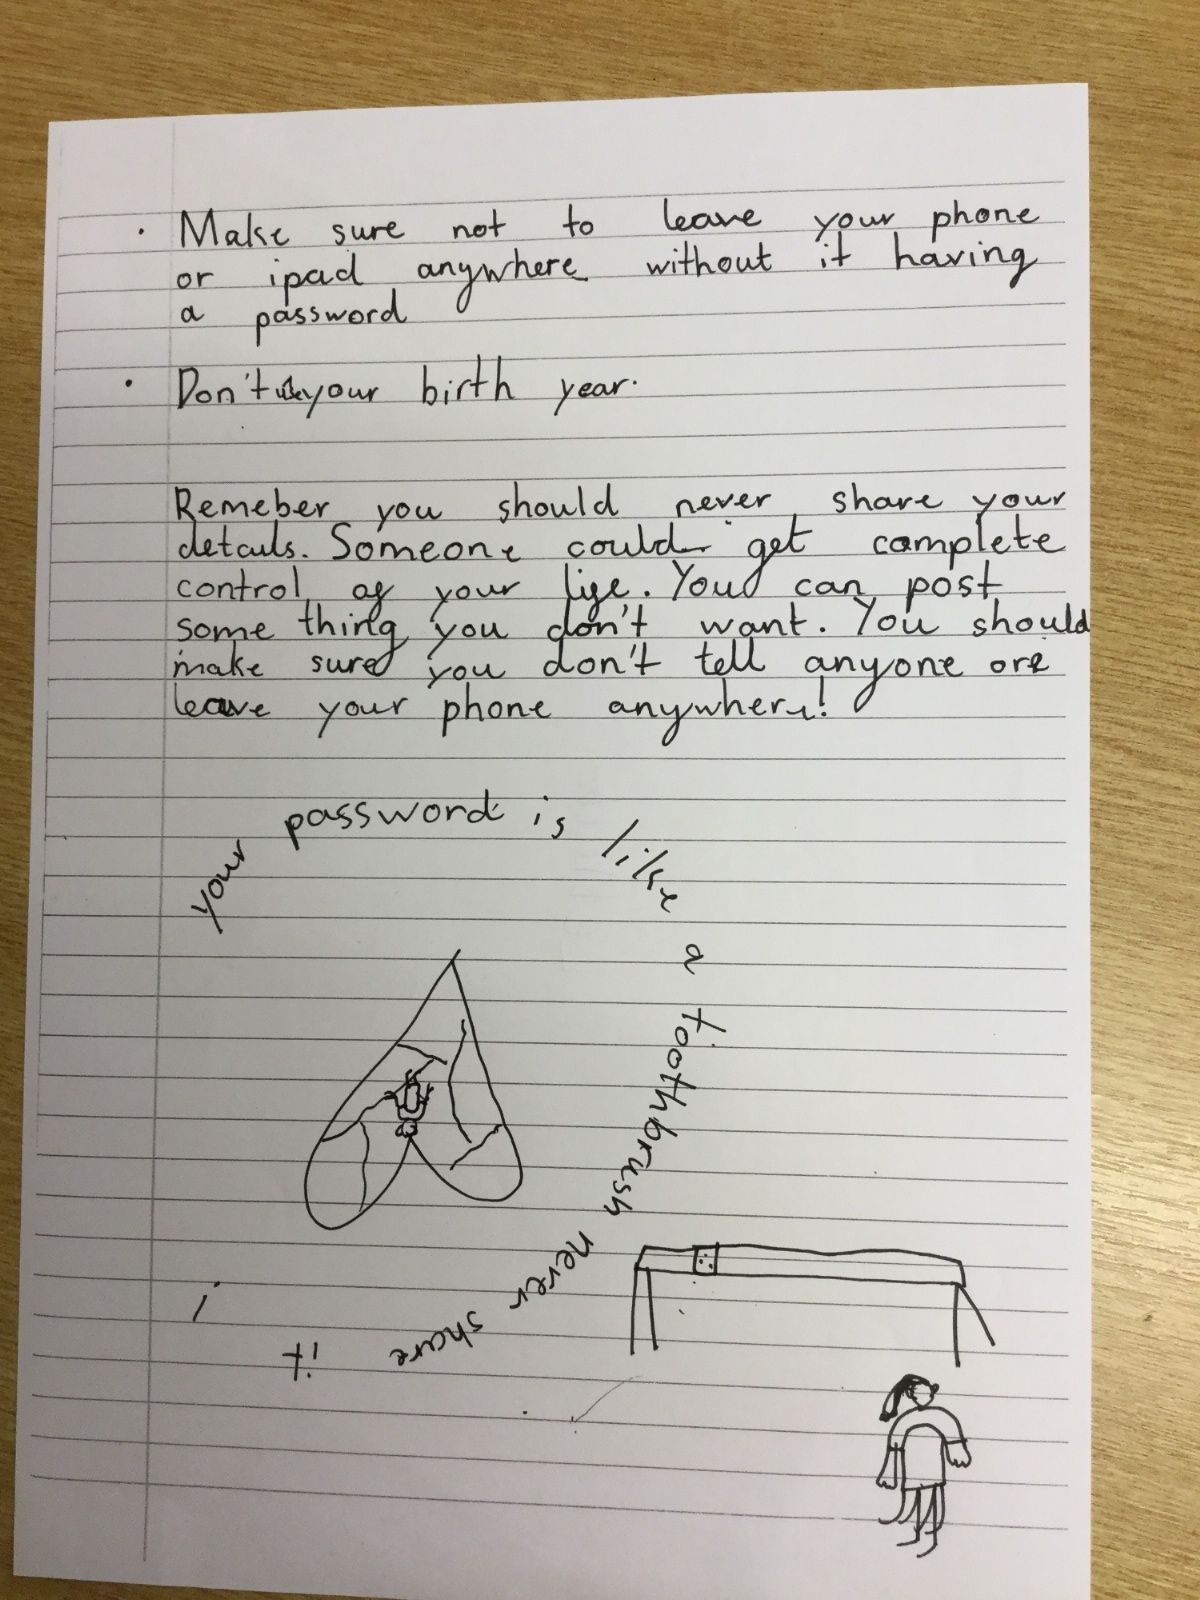 · Make sure not to leave your phone
or ipad anywhere without it having
a password
· Don't use your birth year.
Remeber you should never share your
details. Someone could get complete
control of your life. You can post
some thing you don't want. You should
make sure you don't tell anyone ore
leave your phone anywhere!
your password is like a toothbrush never share it !